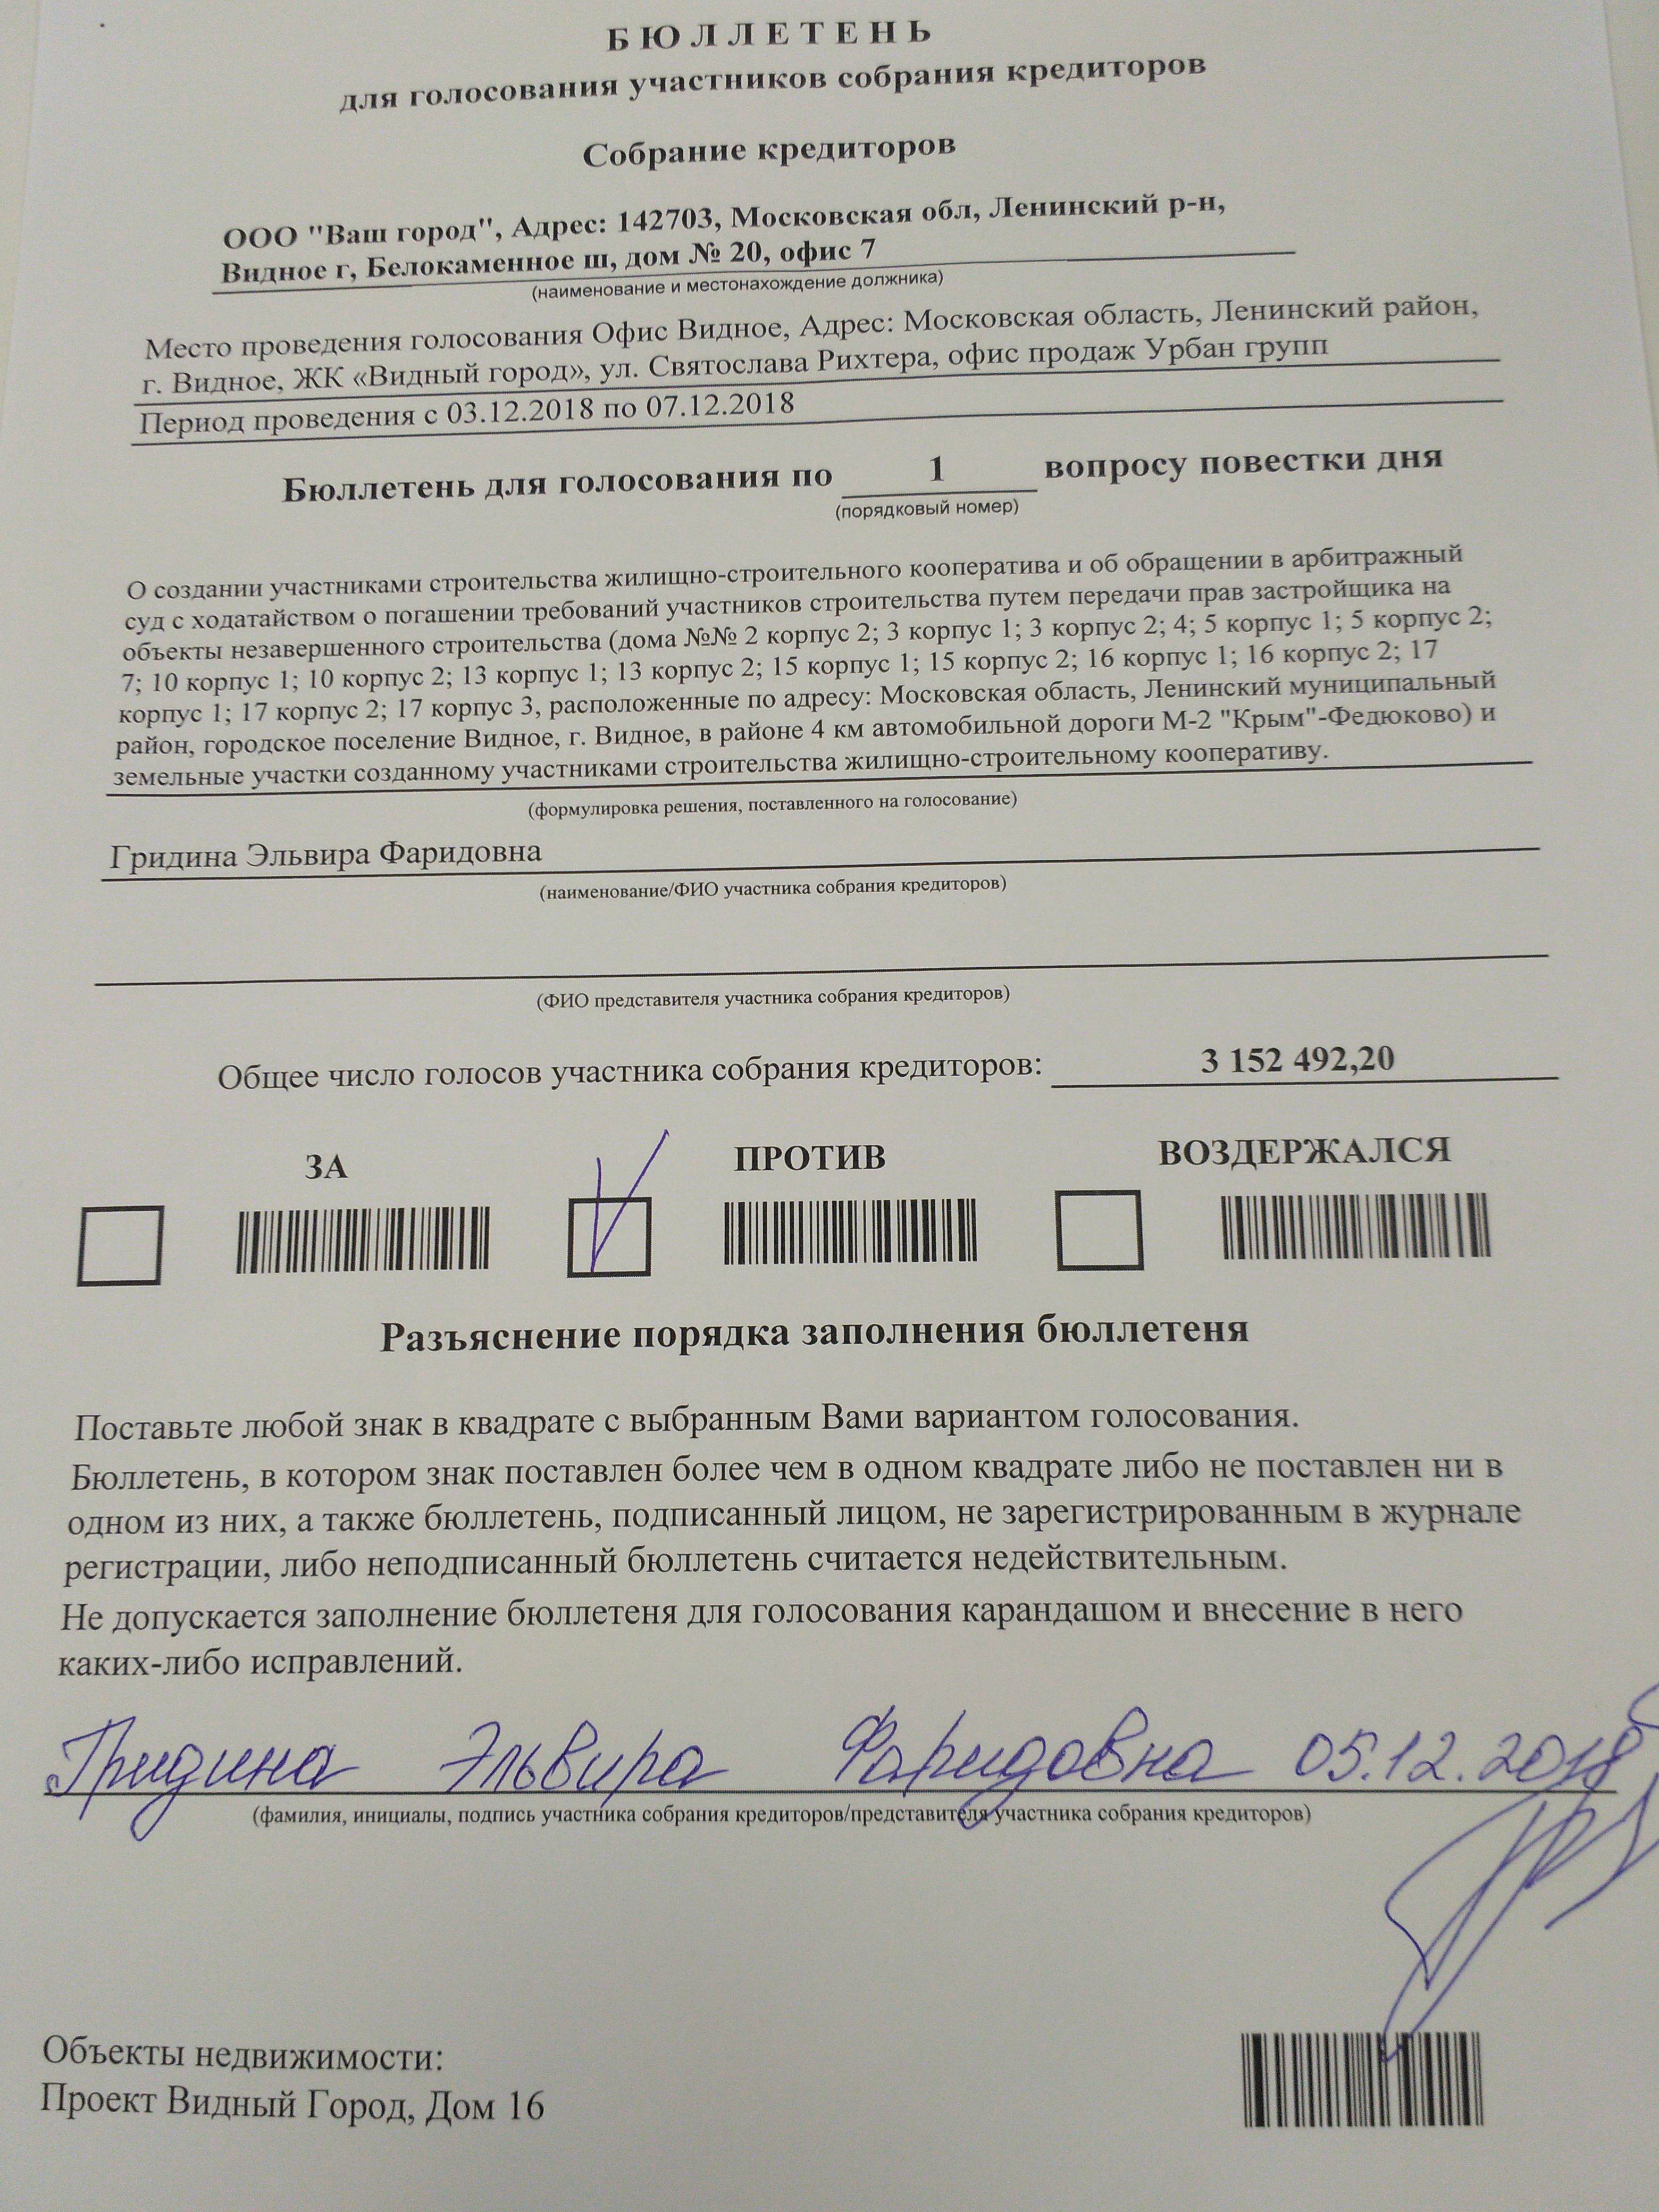 БЮЛЛЕТЕНЬ
для голосования участников собрания кредиторов
Собрание кредиторов
ООО "Ваш город", Адрес: 142703, Московская обл, Ленинский р-н,
Видное г, Белокаменное ш, дом № 20, офис 7
(наименование и местонахождение должника)
Место проведения голосования Офис Видное, Адрес: Московская область, Ленинский район,
г. Видное, ЖК «Видный город», ул. Святослава Рихтера, офис продаж Урбан групп
Период проведения с 03.12.2018 по 07.12.2018
Бюллетень для голосования по 1 вопросу повестки дня
(порядковый номер)
О создании участниками строительства жилищно-строительного кооператива и об обращении в арбитражный
суд с ходатайством о погашении требований участников строительства путем передачи прав застройщика на
объекты незавершенного строительства (дома №№ 2 корпус 2; 3 корпус 1; 3 корпус 2; 4; 5 корпус 1; 5 корпус 2;
7; 10 корпус 1; 10 корпус 2; 13 корпус 1; 13 корпус 2; 15 корпус 1; 15 корпус 2; 16 корпус 1; 16 корпус 2; 17
корпус 1; 17 корпус 2; 17 корпус 3, расположенные по адресу: Московская область, Ленинский муниципальный
район, городское поселение Видное, г. Видное, в районе 4 км автомобильной дороги М-2 "Крым"-Федюково) и
земельные участки созданному участниками строительства жилищно-строительному кооперативу.
(формулировка решения, поставленного на голосование)
Гридина Эльвира Фаридовна
(наименование/ФИО участника собрания кредиторов)
(ФИО представителя участника собрания кредиторов)
Общее число голосов участника собрания кредиторов: 3 152 492,20
ЗА ПРОТИВ ВОЗДЕРЖАЛСЯ
Разъяснение порядка заполнения бюллетеня
Поставьте любой знак в квадрате с выбранным Вами вариантом голосования.
Бюллетень, в котором знак поставлен более чем в одном квадрате либо не поставлен ни в
одном из них, а также бюллетень, подписанный лицом, не зарегистрированным в журнале
регистрации, либо неподписанный бюллетень считается недействительным.
Не допускается заполнение бюллетеня для голосования карандашом и внесение в него
каких-либо исправлений.
Гридина Эльвира Фаридовна 05.12.2018
(фамилия, инициалы, подпись участника собрания кредиторов/представителя участника собрания кредиторов)
Объекты недвижимости:
Проект Видный Город, Дом 16